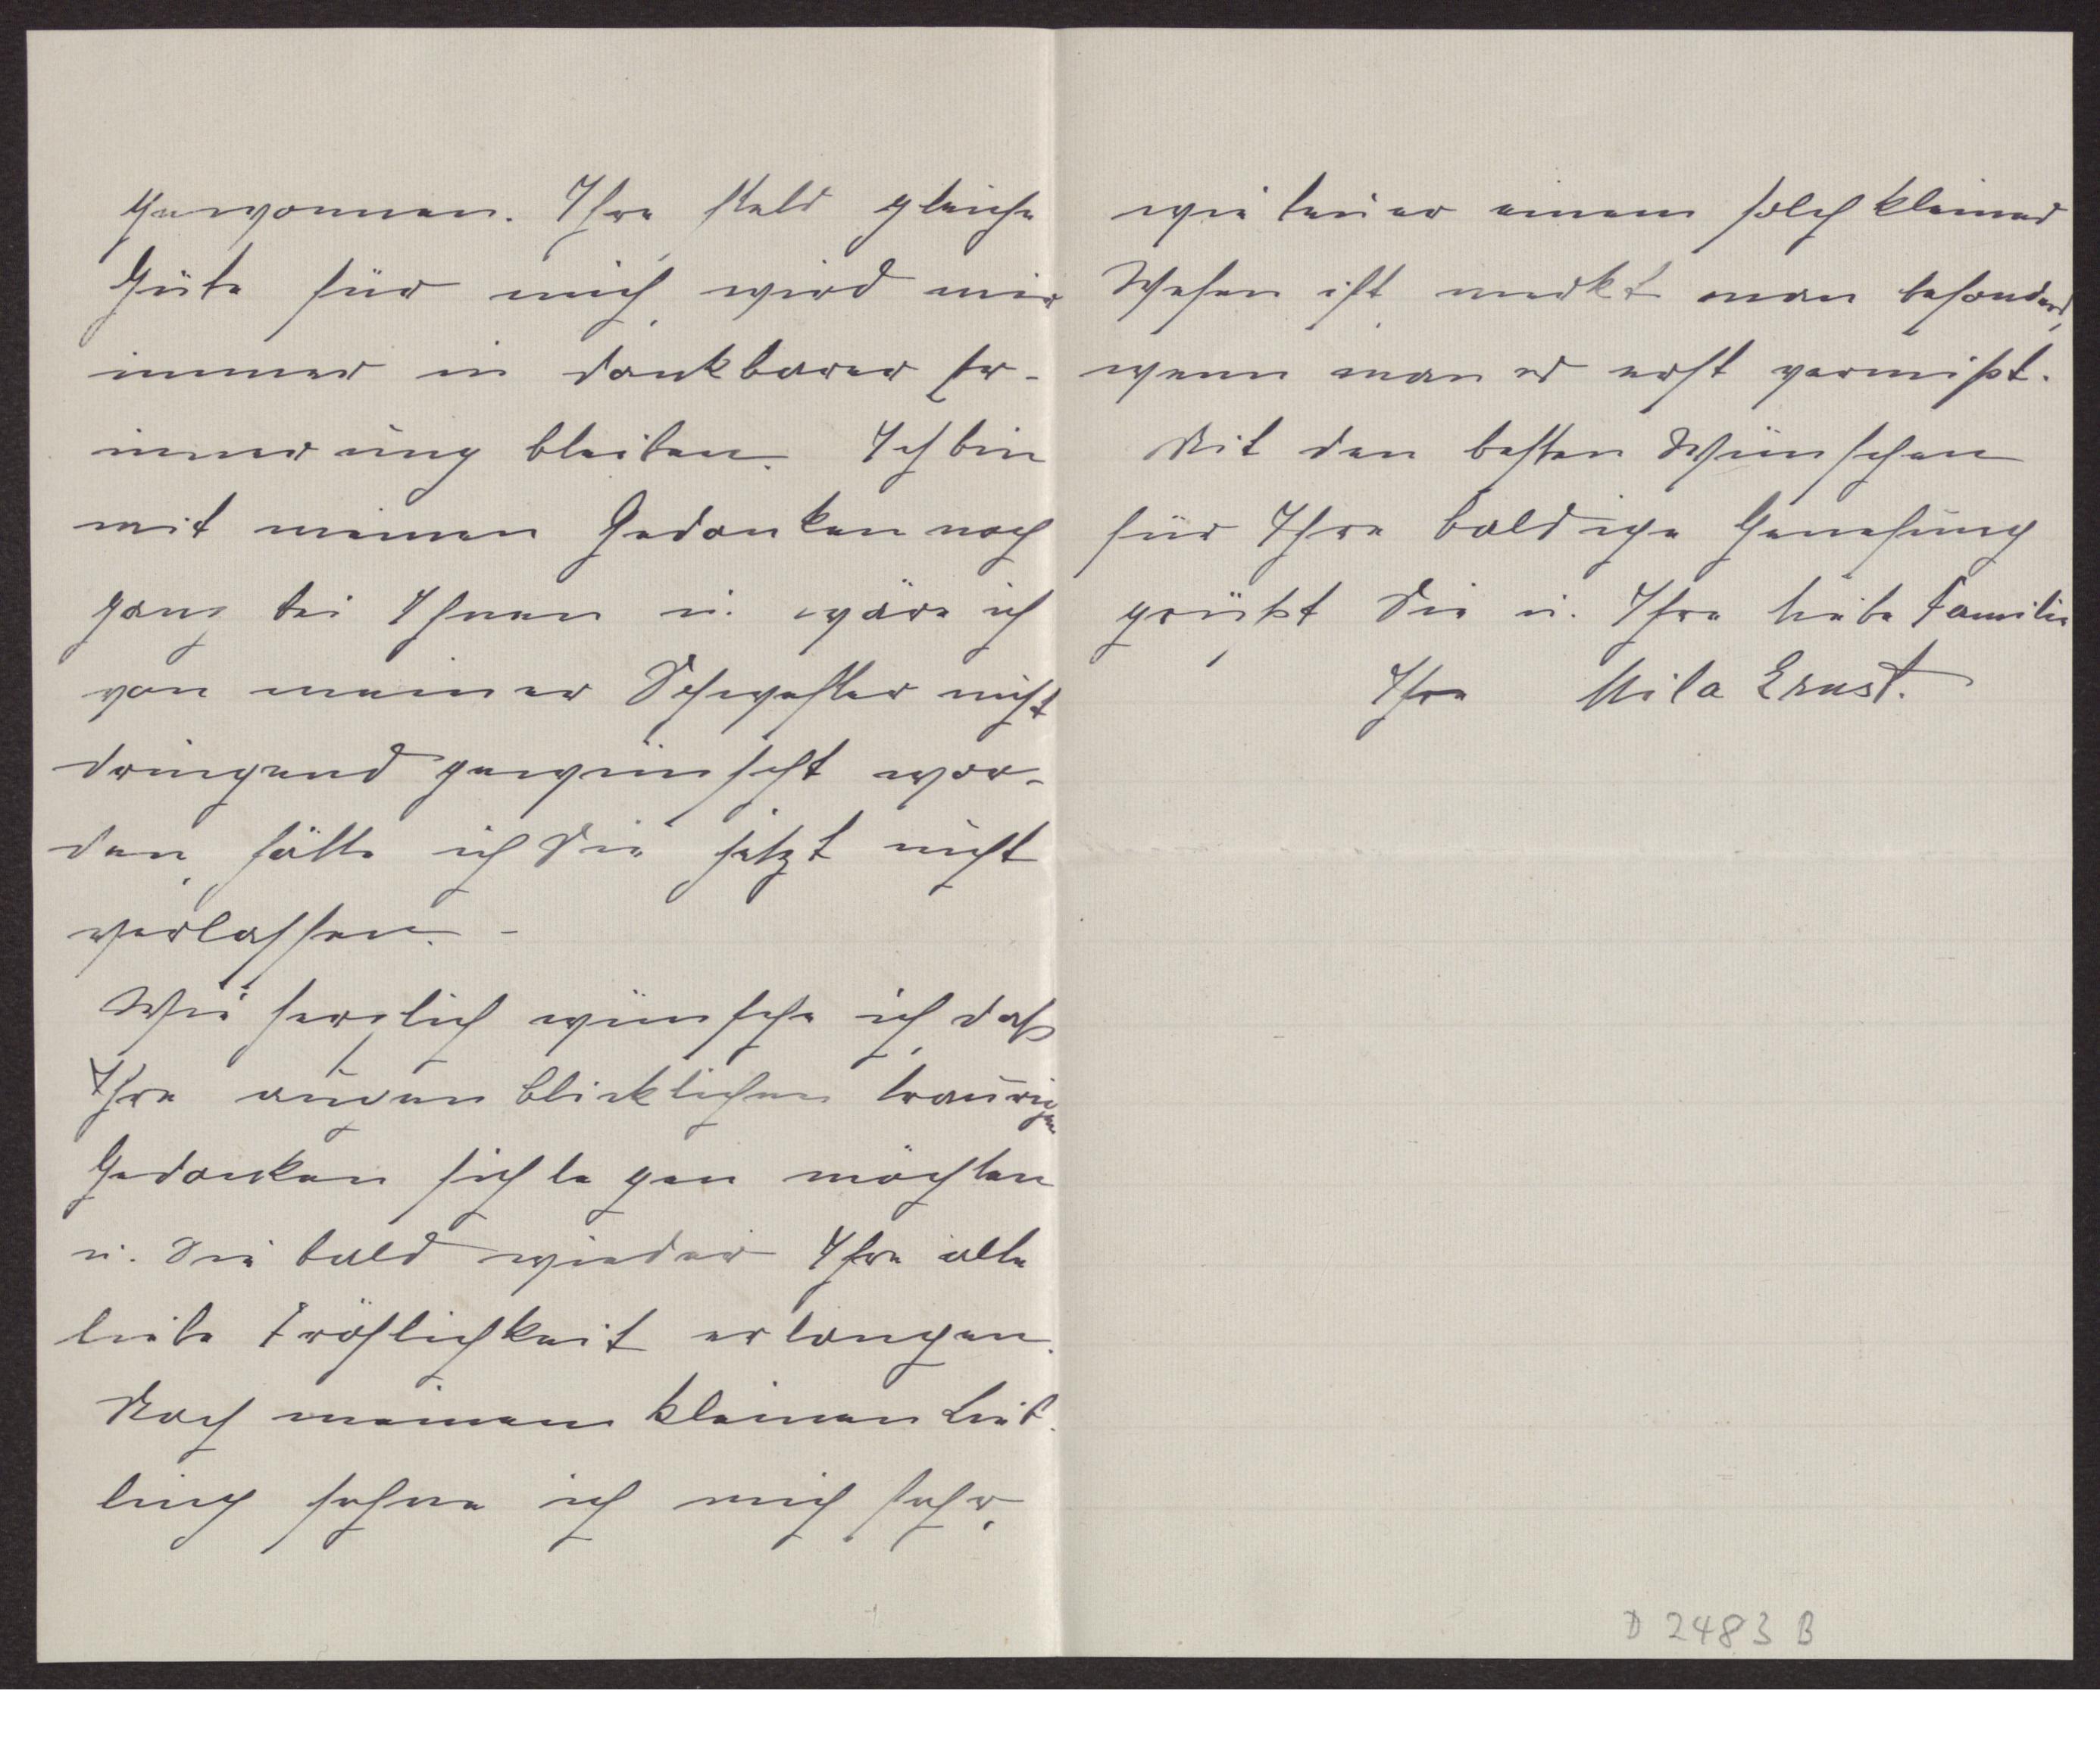 gewonnen. Ihre stets gleiche
Güte für mich wird mir
immer in dankbarer Er-
innerung bleiben. Ich bin
mit meinen Gedanken noch
ganz bei Ihnen u. wäre ich
von meiner Schwester nicht
dringend gewünscht wor-
den, hätte ich Sie jetzt nicht
verlassen. -
Wie herzlich wünsche ich, daß
Ihre augenblicklichen traurigen
Gedanken sich legen möchten
u. Sie bald wieder Ihre alte
liebe Fröhlichkeit erlangen.
Nach meinem kleinen Lieb-
ling sehne ich mich sehr,
wie teuer einem solch kleines
Wesen ist, merkt man besonders,
wenn man es erst vermißt.
Mit den besten Wünschen
für Ihre baldige Genesung
grüßt Sie u. Ihre liebe Familie
Ihre Mila Ernst.
D 2483 B